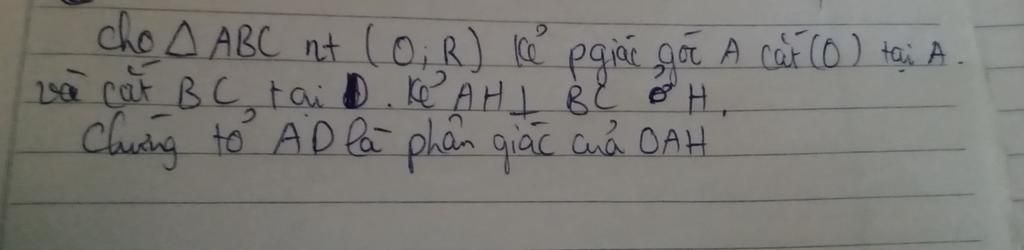 Cho △ ABC nt (O; R) Kẻ pgiác góc A cắt (O) tại A.
và cắt BC tại D. Kẻ AH ⊥ BC ở H.
Chứng tỏ AD là phân giác của OAH